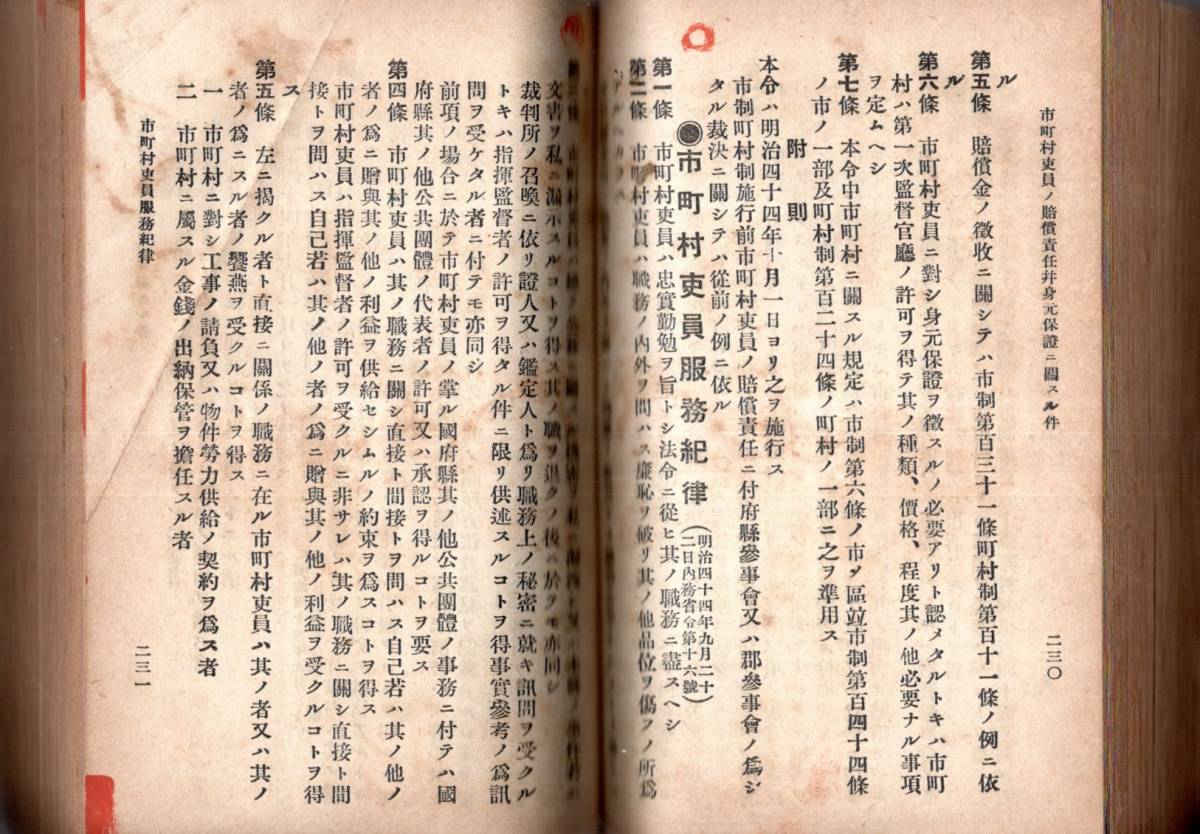 市町村吏員ノ賠償責任幷身元保證ニ關スル件
二三〇
ル
第五條 賠償金ノ徵收ニ關シテハ市制第百三十一條町村制第百十一條ノ例ニ依
ル
第六條 市町村吏員ニ對シ身元保證ヲ徵スルノ必要アリト認メタルトキハ市町
村ハ第一次監督官廳ノ許可ヲ得テ其ノ種類、價格、程度其ノ他必要ナル事項
ヲ定ムヘシ
第七條 本令中市町村ニ關スル規定ハ市制第六條ノ市ノ區竝市制第百四十四條
ノ市ノ一部及町村制第百二十四條ノ町村ノ一部ニ之ヲ準用ス
附則
本令ハ明治四十四年十月一日ヨリ之ヲ施行ス
市制町村制施行前市町村吏員ノ賠償責任ニ付府縣參事會又ハ郡參事會ノ爲シ
タル裁決ニ關シテハ從前ノ例ニ依ル
●市町村吏員服務紀律(明治四十四年九月二十
二日內務省令第十六號)
第一條 市町村吏員ハ忠實勤勉ヲ旨トシ法令ニ從ヒ其ノ職務ニ盡スヘシ
第二條 市町村吏員ハ職務ノ內外ヲ問ハス廉恥ヲ破リ其ノ他品位ヲ傷フノ所爲
文書ヲ私ニ漏示スルコトヲ得ス其ノ職ヲ退クノ後ニ於テモ亦同シ
裁判所ノ召喚ニ依リ證人又ハ鑑定人ト爲リ職務上ノ秘密ニ就キ訊問ヲ受クル
トキハ指揮監督者ノ許可ヲ得タル件ニ限リ供述スルコトヲ得事實參考ノ爲訊
問ヲ受ケタル者ニ付テモ亦同シ
前項ノ場合ニ於テ市町村吏員ノ掌ル國府縣其ノ他公共團體ノ事務ニ付テハ國
府縣其ノ他公共團體ノ代表者ノ許可又ハ承認ヲ得ルコトヲ要ス
第四條 市町村吏員ハ其ノ職務ニ關シ直接ト間接トヲ問ハス自己若ハ其ノ他ノ
者ノ爲ニ贈與其ノ他ノ利益ヲ供給セシムルノ約束ヲ爲スコトヲ得ス
市町村吏員ハ指揮監督者ノ許可ヲ受クルニ非サレハ其ノ職務ニ關シ直接ト間
接トヲ問ハス自己若ハ其ノ他ノ者ノ爲ニ贈與其ノ他ノ利益ヲ受クルコトヲ得
ス
第五條 左ニ揭クル者ト直接ニ關係ノ職務ニ在ル市町村吏員ハ其ノ者又ハ其ノ
者ノ爲ニスル者ノ饗燕ヲ受クルコトヲ得ス
一 市町村ニ對シ工事ノ請負又ハ物件勞力供給ノ契約ヲ爲ス者
二 市町村ニ屬スル金錢ノ出納保管ヲ擔任スル者
市町村吏員服務紀律
二三一